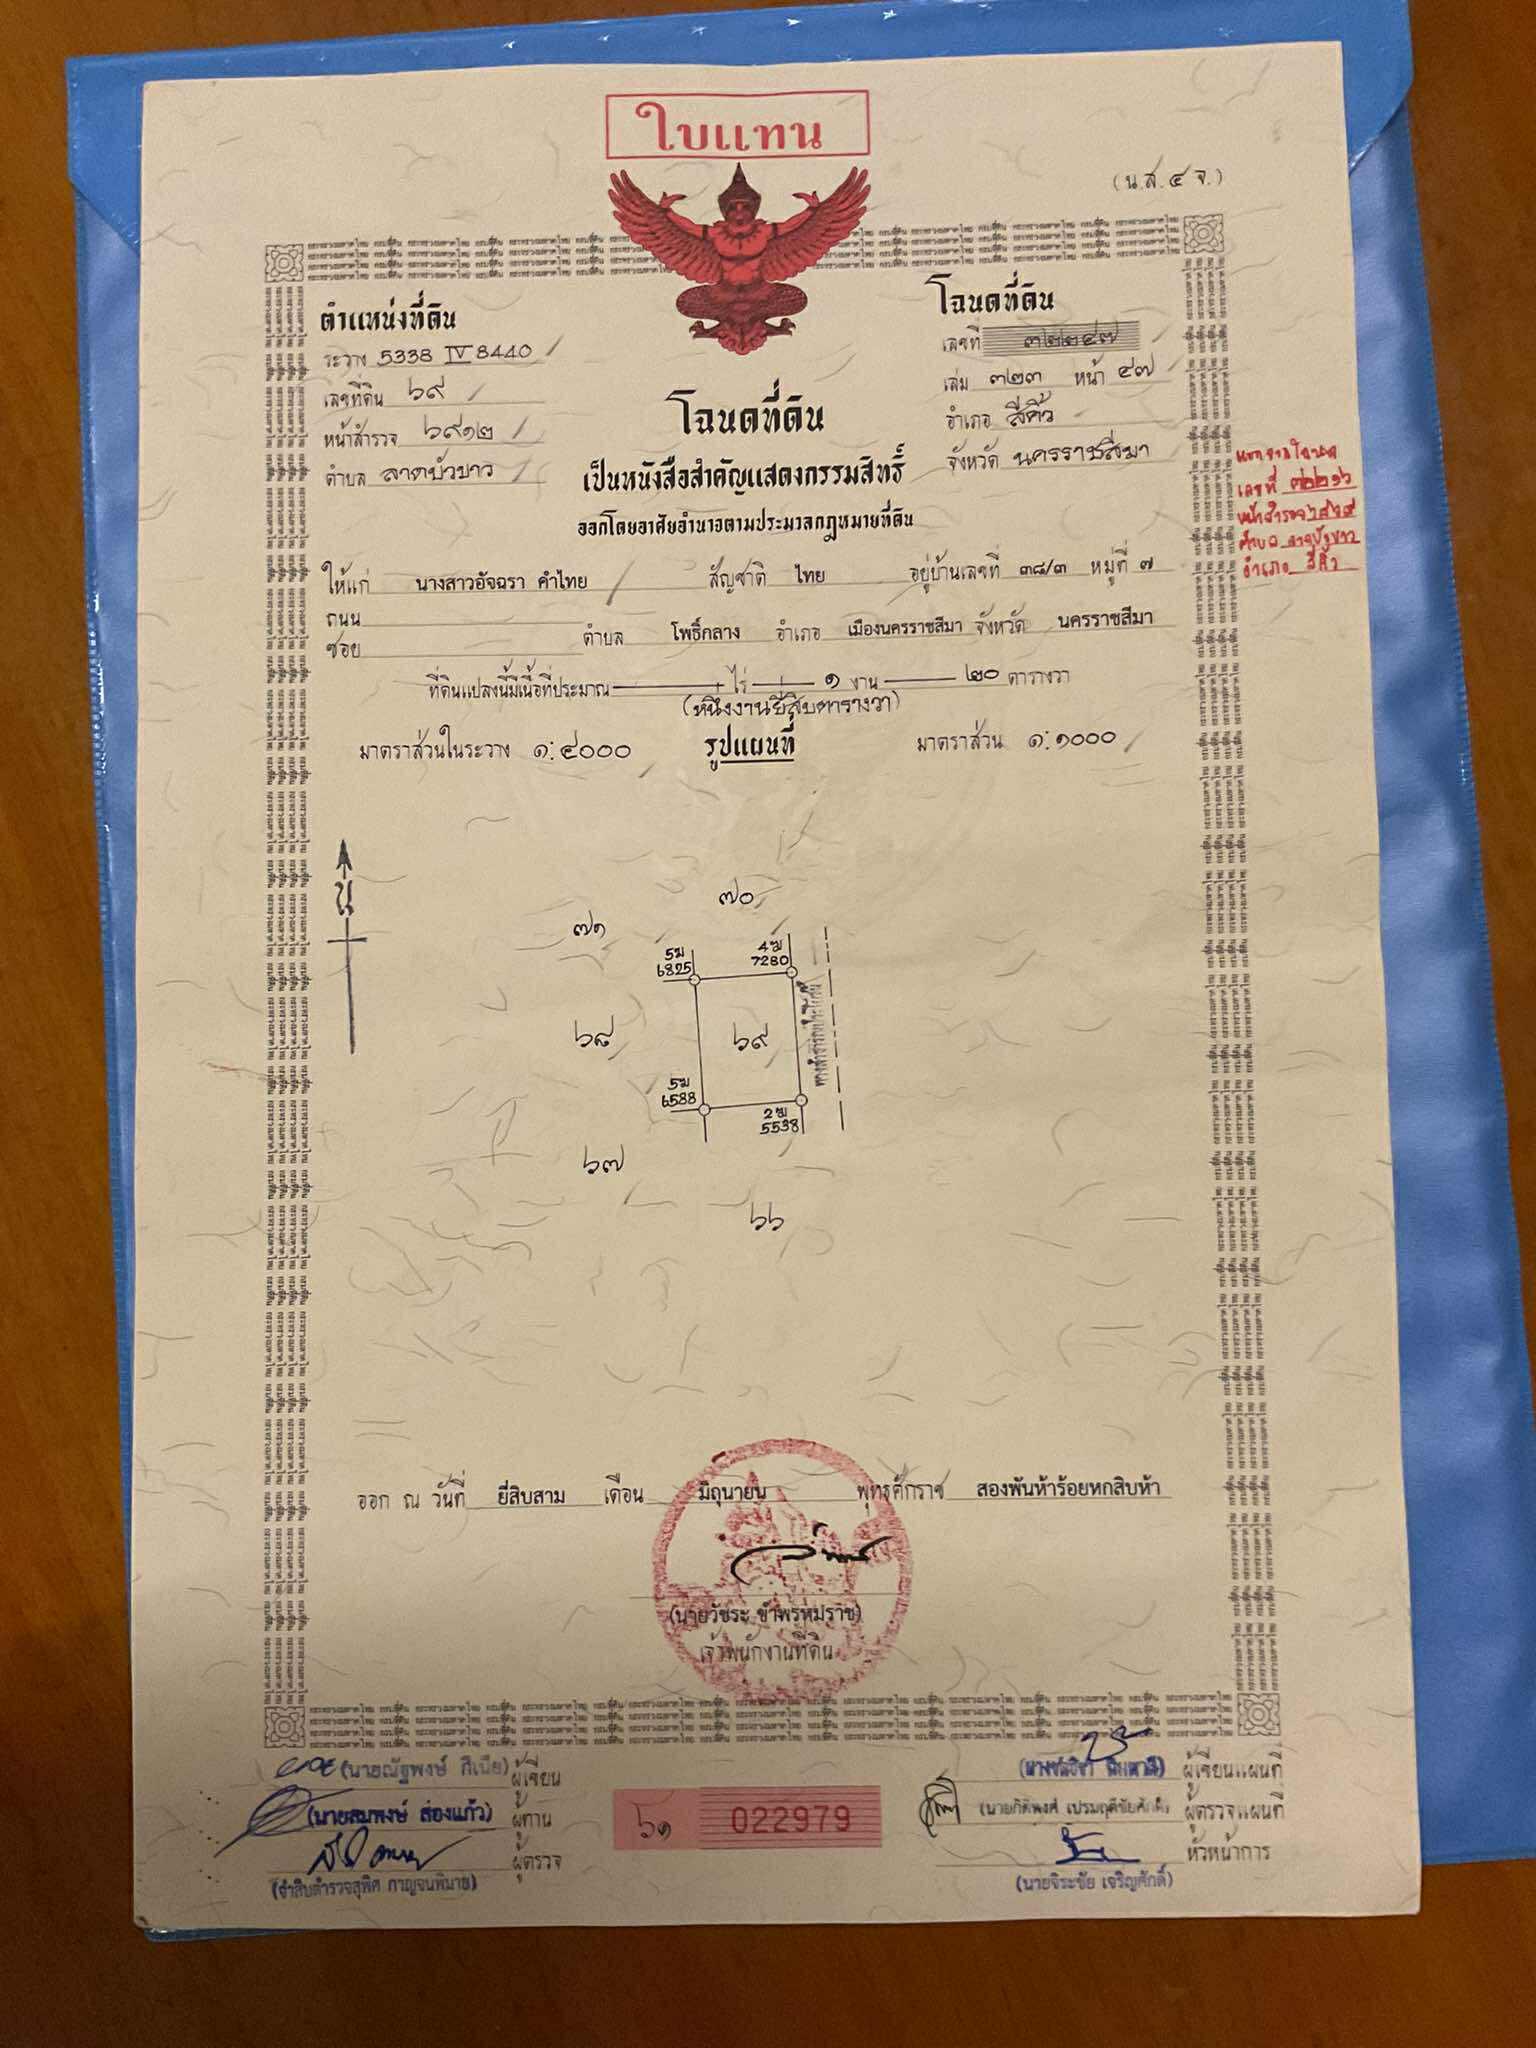 ใบแทน
(น.ส.๔ จ.)
ตำแหน่งที่ดิน
ระวาง 5338 IV 8440
เลขที่ดิน ๖๙
หน้าสำรวจ ๖๙๑๒
ตำบล ลาดบัวขาว
โฉนดที่ดิน
เลขที่ ๓๒๒๔๗
เล่ม ๓๒๓ หน้า ๔๗
อำเภอ สีคิ้ว
จังหวัด นครราชสีมา
โฉนดที่ดิน
เป็นหนังสือสำคัญแสดงกรรมสิทธิ์
ออกโดยอาศัยอำนาจตามประมวลกฎหมายที่ดิน
เลขที่
หน้าสำรวจ
ตำบล ลาดบัวขาว
อำเภอ สีคิ้ว
ให้แก่ นางสาวอัจฉรา คำไทย สัญชาติ ไทย อยู่บ้านเลขที่ ๓๘/๓ หมู่ที่ ๗
ถนน
ซอย ตำบล โพธิ์กลาง อำเภอ เมืองนครราชสีมา จังหวัด นครราชสีมา
ที่ดินแปลงนี้มีเนื้อที่ประมาณ ไร่ ๑ งาน ๒๐ ตารางวา
(หนึ่งงานยี่สิบตารางวา)
มาตราส่วนในระวาง ๑:๔๐๐๐ รูปแผนที่ มาตราส่วน ๑:๑๐๐๐
น
๗๐
๗๑
5ฆ
6825
4ฆ
7280
๖๘
๖๙
ทางสาธารณประโยชน์
5ฆ
6588
2ฆ
5538
๖๗
๖๖
ออก ณ วันที่ ยี่สิบสาม เดือน มิถุนายน พุทธศักราช สองพันห้าร้อยหกสิบห้า
(นายวัชระ ขำพรหมราช)
เจ้าพนักงานที่ดิน
(นายณัฐพงษ์ ) ผู้เขียน
(นายสมพงษ์ ส่องแก้ว) ผู้ทาน
ผู้ตรวจ
(จ่าสิบตำรวจสุพิศ กาญจนพิมาย)
๖๑ 022979
ผู้เขียนแผนที่
(นายกิติพงศ์ เปรมฤดีชัยศักดิ์) ผู้ตรวจแผนที่
หัวหน้าการ
(นายจิระชัย เจริญศักดิ์)